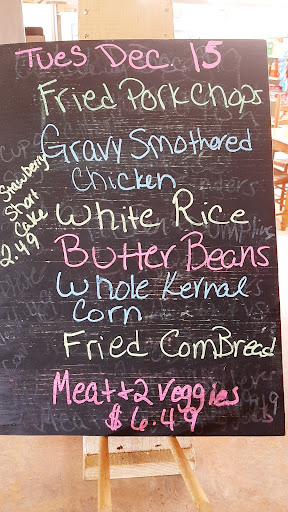 Tues Dec. 15
Fried Porkchops
Gravy Smothered
Chicken
Strawberry
Short
Cake
2.49
White Rice
Butter Beans
Whole Kernal
Corn
Fried CornBread
Meat+2 Veggies
$6.49